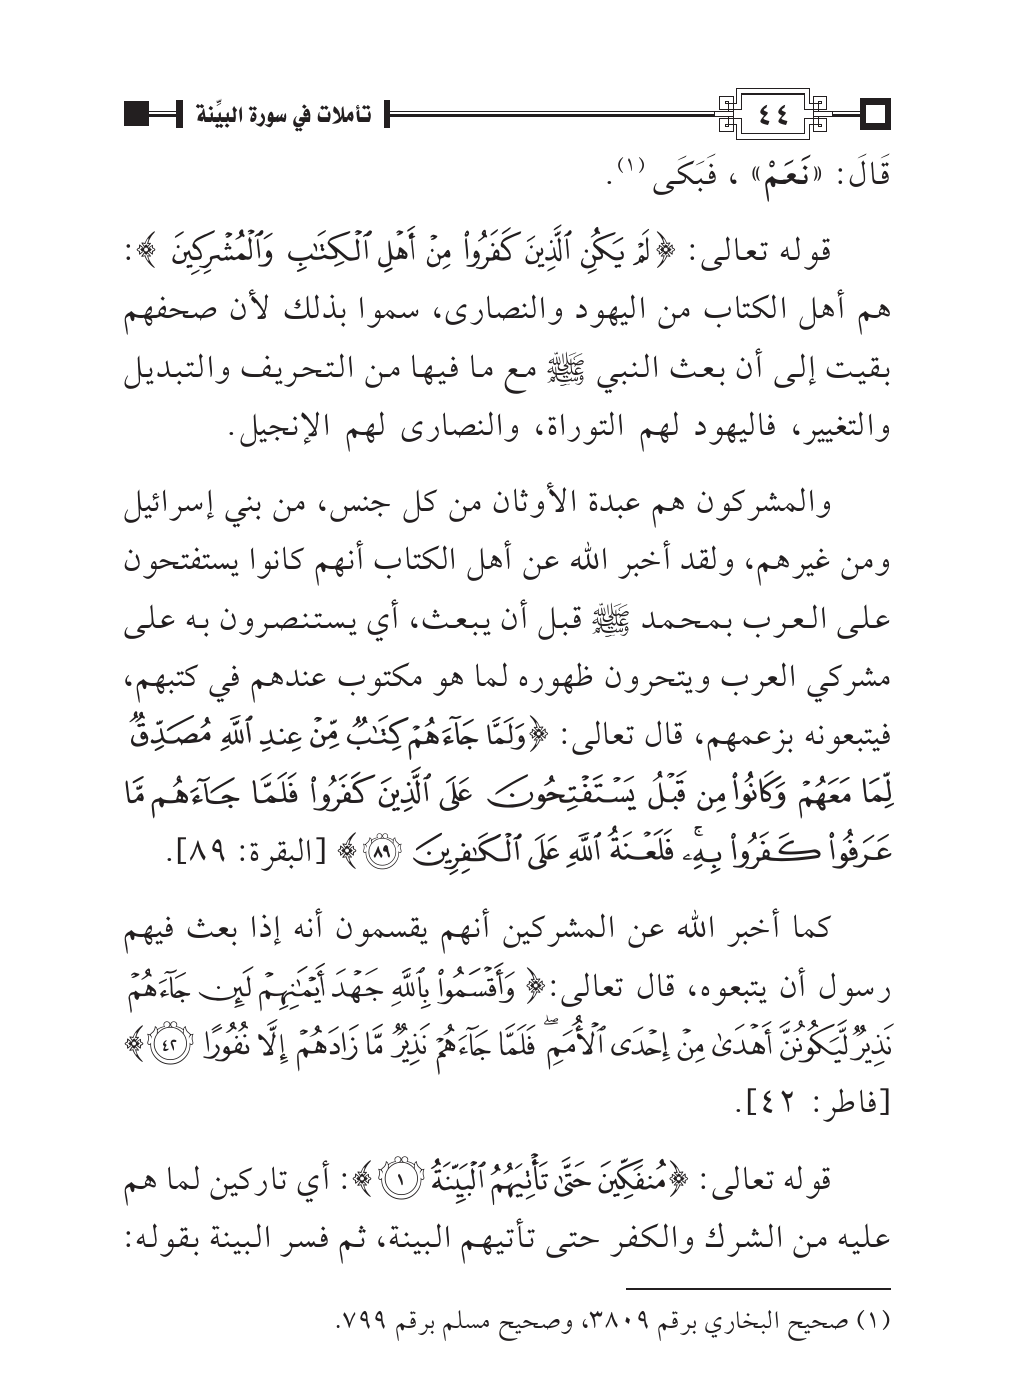 ٤٤
تأملات في سورة البيِّنة
قَالَ: «نَعَمْ» ، فَبَكَى (١).
قوله تعالى: ﴿لَمْ يَكُنِ ٱلَّذِينَ كَفَرُوا۟ مِنْ أَهْلِ ٱلْكِتَٰبِ وَٱلْمُشْرِكِينَ ﴾:
هم أهل الكتاب من اليهود والنصارى، سموا بذلك لأن صحفهم
بقيت إلى أن بعث النبي ﷺ مع ما فيها من التحريف والتبديل
والتغيير، فاليهود لهم التوراة، والنصارى لهم الإنجيل.
والمشركون هم عبدة الأوثان من كل جنس، من بني إسرائيل
ومن غيرهم، ولقد أخبر الله عن أهل الكتاب أنهم كانوا يستفتحون
على العرب بمحمد ﷺ قبل أن يبعث، أي يستنصرون به على
مشركي العرب ويتحرون ظهوره لما هو مكتوب عندهم في كتبهم،
فيتبعونه بزعمهم، قال تعالى: ﴿وَلَمَّا جَآءَهُمْ كِتَٰبٌ مِّنْ عِندِ ٱللَّهِ مُصَدِّقٌ
لِّمَا مَعَهُمْ وَكَانُوا۟ مِن قَبْلُ يَسْتَفْتِحُونَ عَلَى ٱلَّذِينَ كَفَرُوا۟ فَلَمَّا جَآءَهُم مَّا
عَرَفُوا۟ كَفَرُوا۟ بِهِۦ ۚ فَلَعْنَةُ ٱللَّهِ عَلَى ٱلْكَٰفِرِينَ ٨٩ ﴾ [البقرة: ٨٩].
كما أخبر الله عن المشركين أنهم يقسمون أنه إذا بعث فيهم
رسول أن يتبعوه، قال تعالى:﴿ وَأَقْسَمُوا۟ بِٱللَّهِ جَهْدَ أَيْمَٰنِهِمْ لَئِن جَآءَهُمْ
نَذِيرٌ لَّيَكُونُنَّ أَهْدَىٰ مِنْ إِحْدَى ٱلْأُمَمِ ۖ فَلَمَّا جَآءَهُمْ نَذِيرٌ مَّا زَادَهُمْ إِلَّا نُفُورًا ٤٢ ﴾
[فاطر: ٤٢].
قوله تعالى: ﴿مُنفَكِّينَ حَتَّىٰ تَأْتِيَهُمُ ٱلْبَيِّنَةُ ١ ﴾: أي تاركين لما هم
عليه من الشرك والكفر حتى تأتيهم البينة، ثم فسر البينة بقوله:
(١) صحيح البخاري برقم ٣٨٠٩، وصحيح مسلم برقم ٧٩٩.